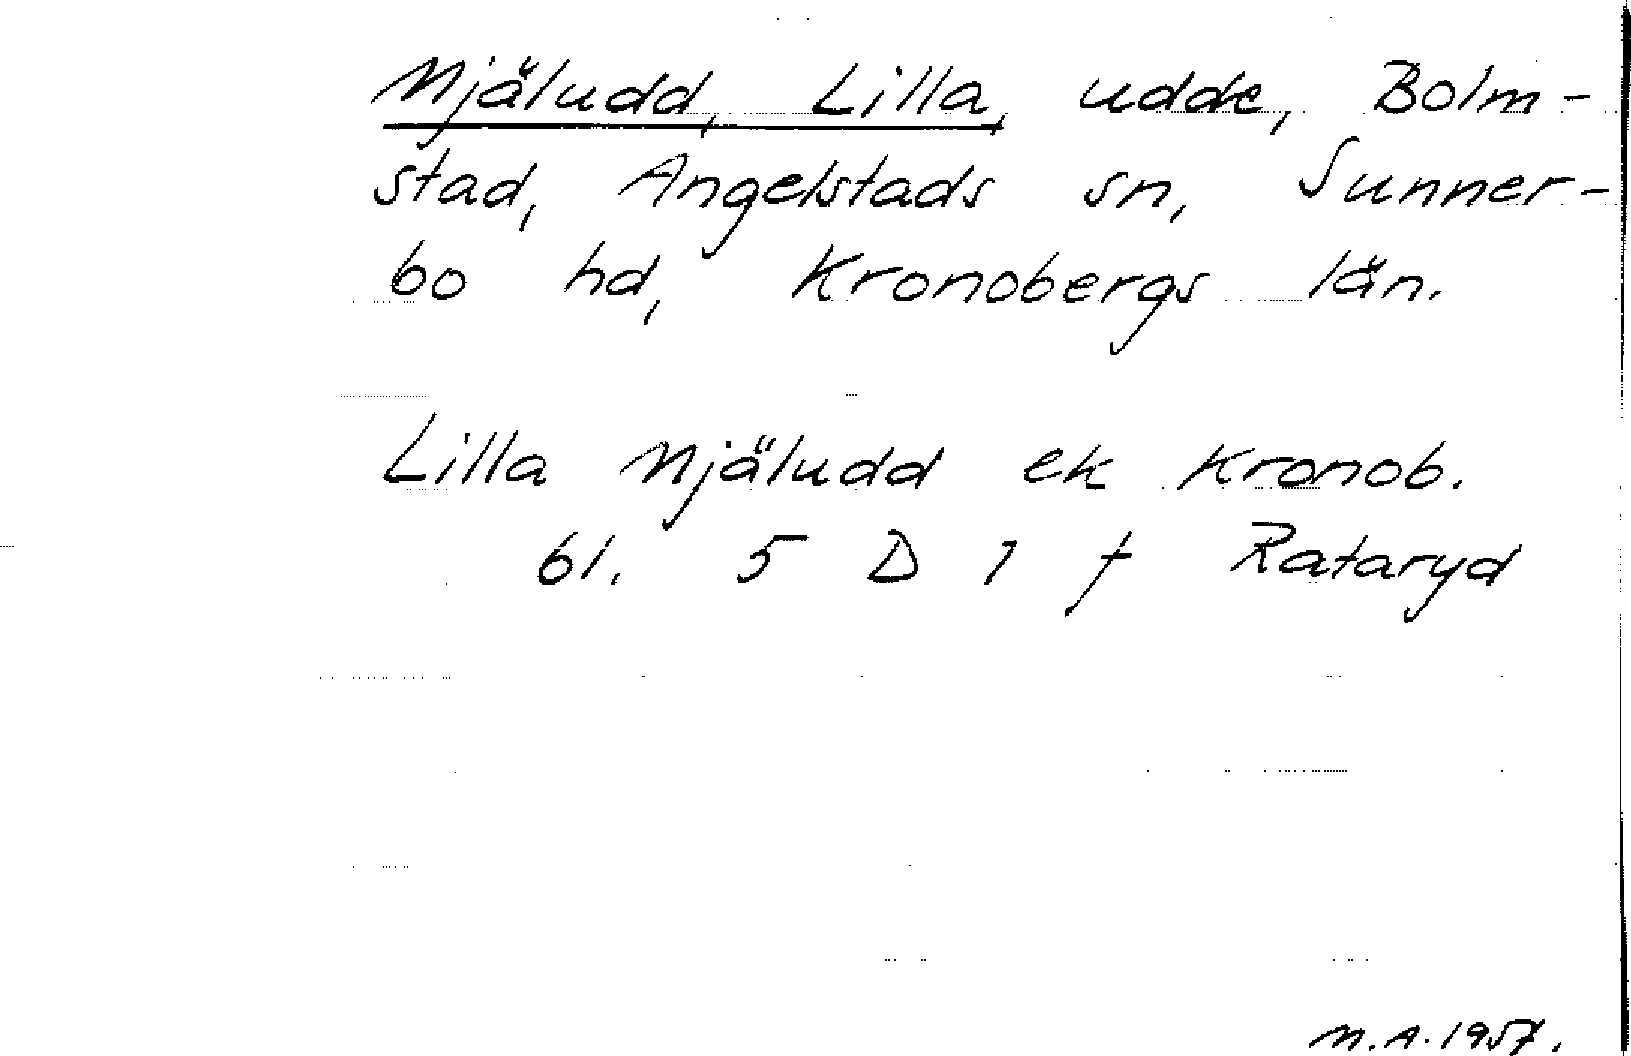 Mjäludd, Lilla, udde, Bolm-
stad, Angelstads sn, Sunner-
bo hd, Kronobergs län.
Lilla Mjäludd ek Kronob.
61. 5 D 1 f Rataryd
M.A. 1957.